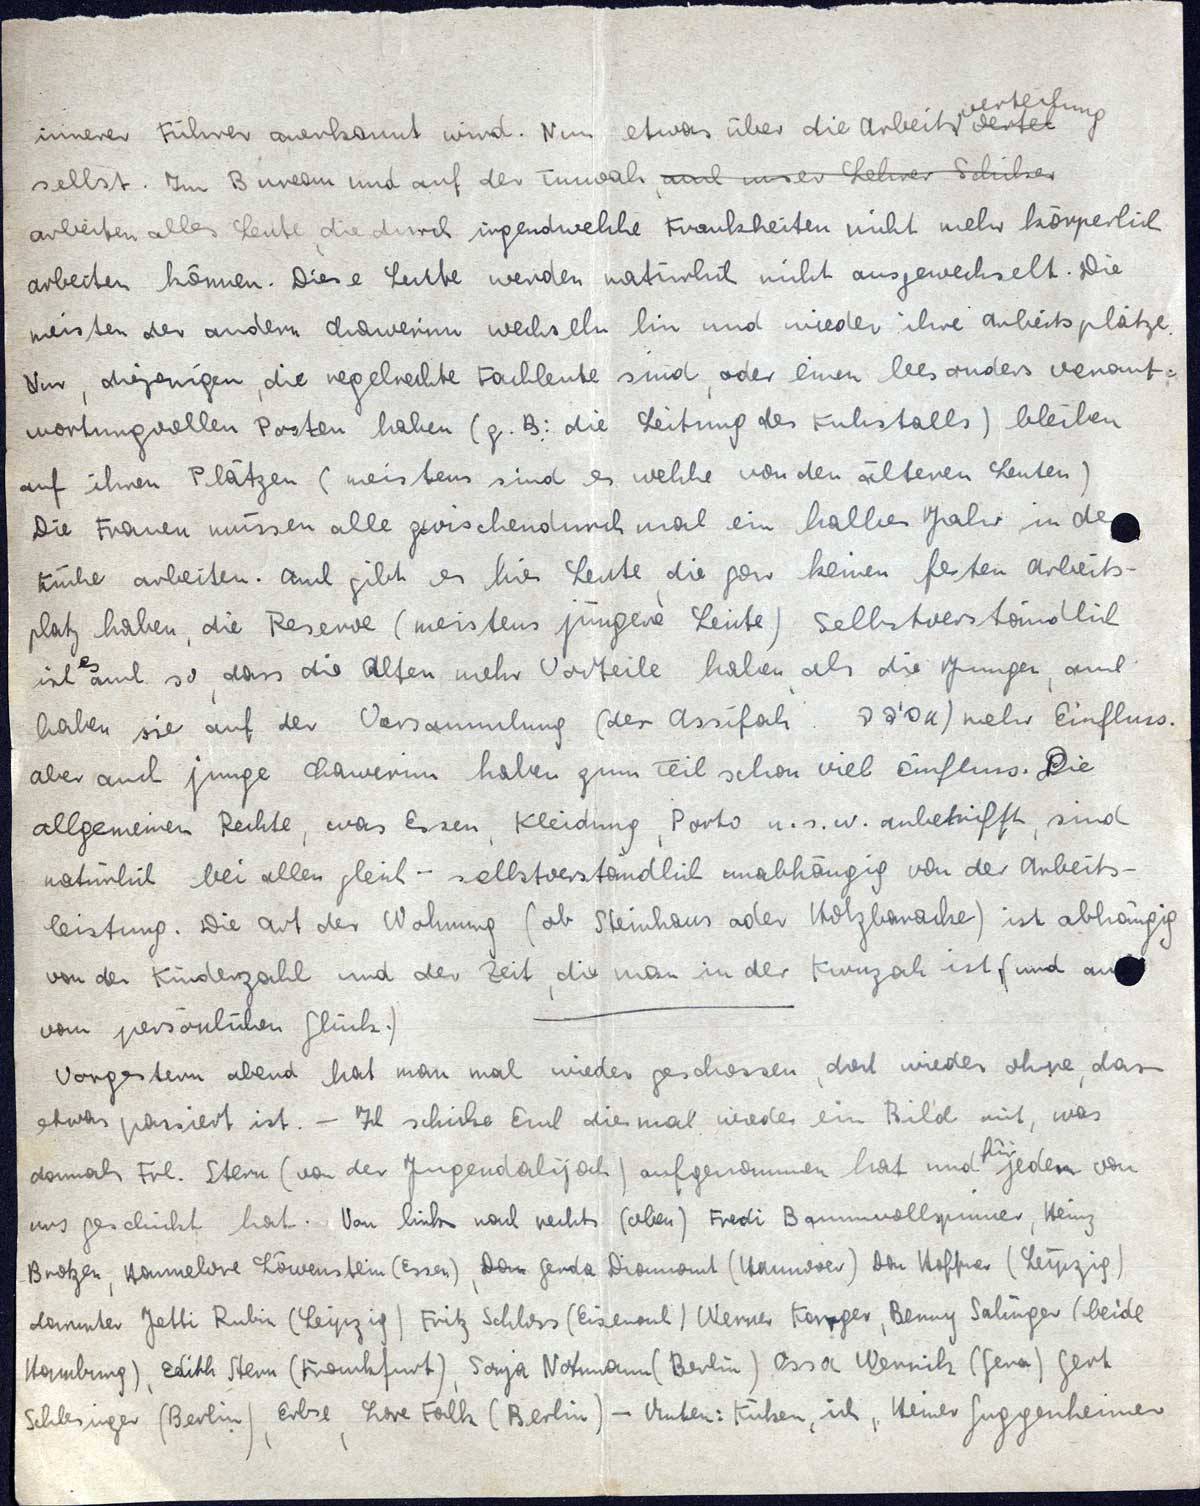 innerer Führer anerkannt wird. Nun etwas über die Arbeitsverteilung
selbst. Im Bureau und auf der Tnuvah, auch unser Lehrer
arbeiten alles Leute, die durch irgendwelche Krankheiten nicht mehr körperlich
arbeiten können. Diese Leute werden natürlich nicht ausgewechselt. Die
meisten der andern Chawerim wechseln hin und wieder ihre Arbeitsplätze.
Nur, diejenigen, die regelrechte Fachleute sind, oder einen besonders verant-
wortungvollen Posten haben (z. B: die Leitung des Kuhstalls) bleiben
auf ihren Plätzen (meistens sind es welche von den älteren Leuten)
Die Frauen müssen alle zwischendurch mal ein halbes Jahr in de
Küche arbeiten. Auch gibt es hier Leute, die gar keinen festen Arbeits-
platz haben, die Reserve (meistens jüngere Leute) Selbstverständlich
ist es auch so, dass die Alten mehr Vorteile haben, als die Jungen, auch
haben sie auf der Versammlung (der Assifah אסיפה) mehr Einfluss.
aber auch junge Chawerim haben zum Teil schon viel Einfluss. Die
allgemeinen Rechte, was Essen, Kleidung, Porto u. s. w. anbetrifft, sind
natürlich bei allen gleich – selbstverständlich unabhängig von der Arbeits-
leistung. Die Art der Wohnung (ob Steinhaus oder Holzbaracke) ist abhängig
von der Kinderzahl und der Zeit, die man in der Kwuzah ist, (und au
vom persönlichen Glück.)
Vorgestern abend hat man mal wieder geschossen, doch wieder ohne, dass
etwas passiert ist. – Ich schicke Euch diesmal wieder ein Bild mit, was
damals Frl. Stern (von der Jugendalijah) aufgenommen hat und für jeden von
uns geschickt hat. Von links nach rechts (oben) Fredi Baumwollspinner, Heinz
Brotzen, Hannelore Löwenstein (Essen), Dan Gerda Diamant (Hannover) Dan Hoffner (Leipzig)
darunter Jetti Rubin (Leipzig) Fritz Schloss (Eisenach) Werner Karger, Benny Salinger (beide
Hamburg), Edith Stern (Frankfurt), Sonja Notmann (Berlin) Ossa Wernik (Gera) Gert
Schlesinger (Berlin), Erbse, Lore Falk (Berlin) – Unten: Küken, ich, Heiner Guggenheimer